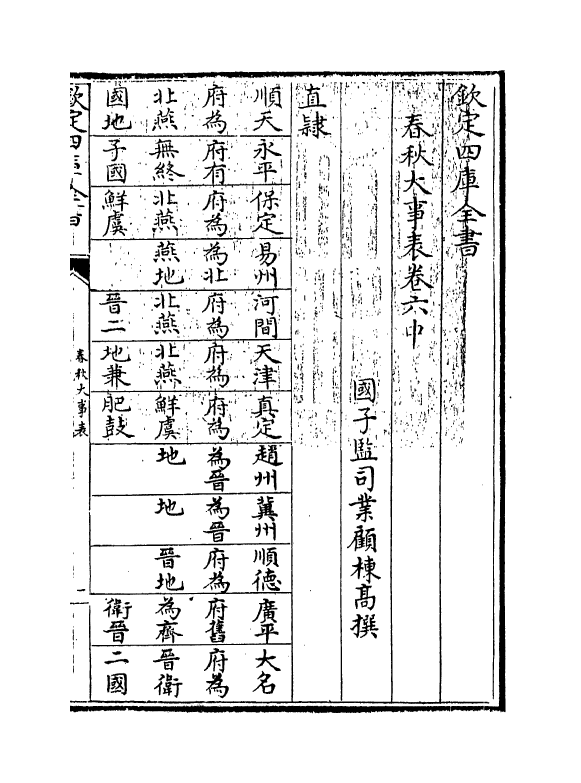 欽定四庫全書
春秋大事表卷六中
國子監司業顧棟高撰
直隸
順天府為北燕國地
永平府有無終子國
保定府為北燕鮮虞
易州為北燕地
河間府為北燕晉二
天津府為北燕地兼
真定府為鮮虞肥鼓
趙州為晉地
冀州為晉地
順德府為晉地
廣平府舊為齊衛晉
大名府為晉衛二國
欽定四庫全書
春秋大事表
一